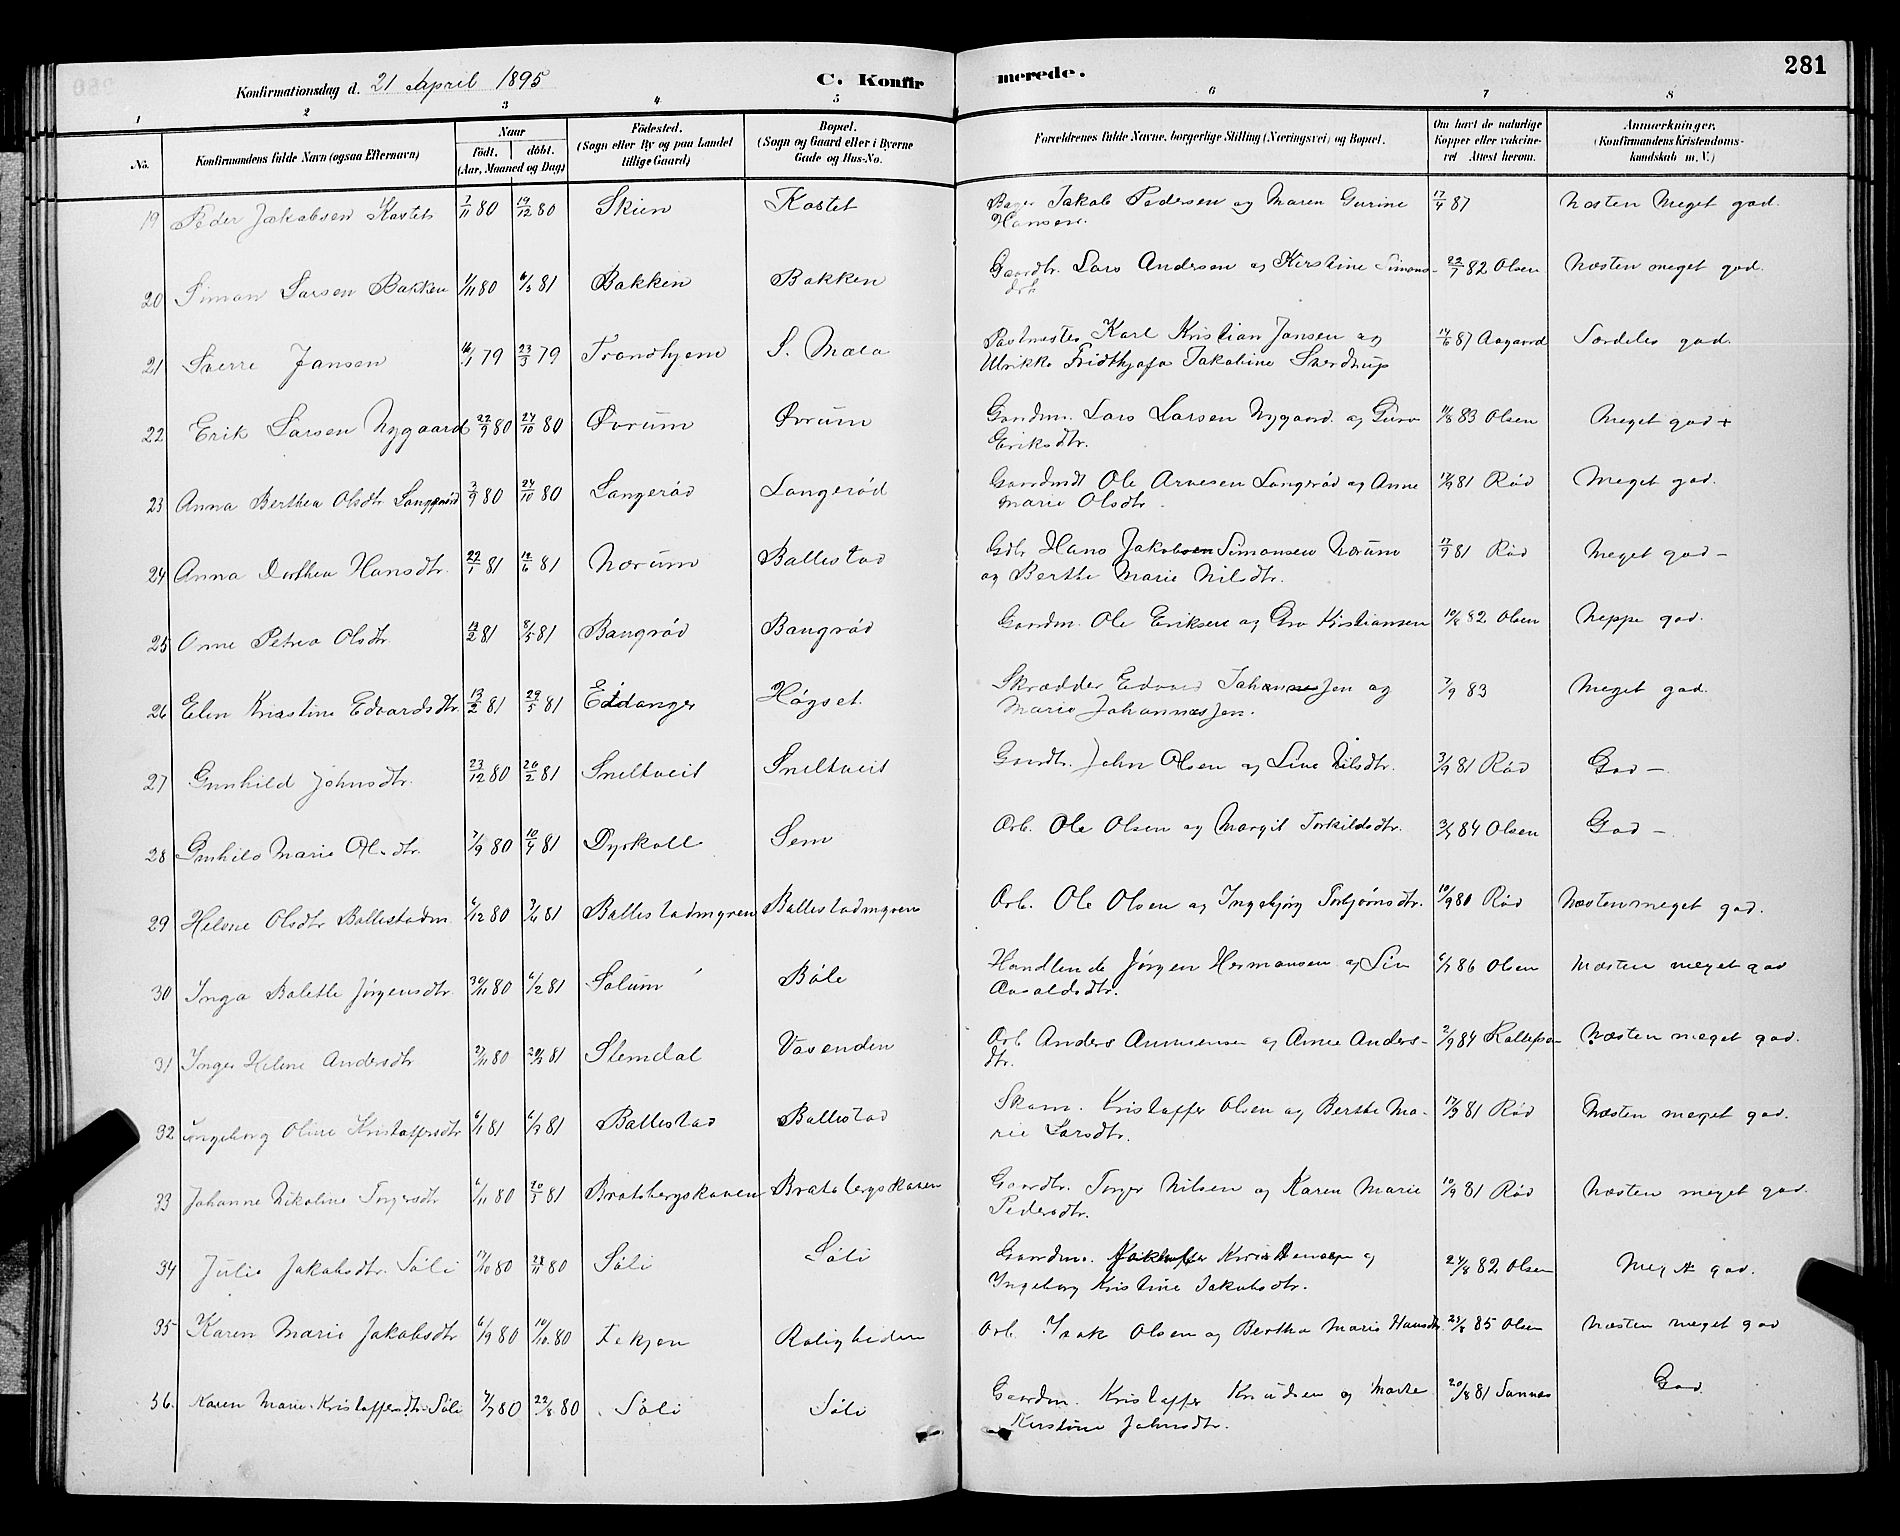 281
Konfirmationsdag d. 21 April 1895 C. Konfirmerede.
1 2 3 4 5 6 7 8
No. Konfirmandens fulde Navn (ogsaa Efternavn) Naar født, døbt. (Aar, Maaned og Dag) Fødested. (Sogn eller By og paa Landet tillige Gaard) Bopæl. (Sogn og Gaard eller i Byerne Gade og Hus-No. Forældrenes fulde Navne, borgerlige Stilling (Næringsvei) og Bopæl. Om havt de naturlige Kopper eller vakcineret Attest herom. Anmærkninger. (Konfirmandens Kristendomskundskab m. V.)
19 Peder Jakobsen Kastet 7/11 80 19/12 80 Skien Kastet Bager Jakob Pedersen og Maren Gurine 17/4 87 Næsten Meget god.
Hansen.
20 Simon Larsen Bakken 1/11 80 6/3 81 Bakken Bakken Gaardbr. Lars Andersen og Kirstine Simons- 22/7 82 Olsen Næsten meget god.
dtr.
21 Sverre Jansen 16/1 79 23/3 79 Trondhjem S. Mæla Postmester Karl Kristian Jansen og 14/6 87 Aagaard Særdeles god.
Ulrikke Fridthjofa Jakobine Sverdrup
22 Erik Larsen Nygaard 22/9 80 24/10 80 Øvrum Øvrum Gaardm. Lars Larsen Nygaard og Guro 11/8 83 Olsen Meget god +
Eriksdtr.
23 Anna Berthea Olsdtr Langerød 3/9 80 24/10 80 Langerød Langerød Gaardmdt Ole Arnesen Langerød og Anne 17/9 81 Rød Meget god.
Marie Olsdtr.
24 Anna Dorthea Hansdtr. 22/1 81 12/6 81 Nærum Ballestad Gdbr Hans Jakobsen Simonsen Nærum 17/9 81 Rød Meget god –
og Berthe Marie Nilsdtr.
25 Petrea Olsdtr 12/2 81 8/5 81 Bangrød Bangrød Gaardm. Ole Eriksen og Gro Kristiansen 10/8 82 Olsen Neppe god.
26 Elen Kristine Edvardsdtr. 13/2 81 29/5 81 Eidanger Høgset. Skrædder Edvard Johannesen og 7/9 83 Meget god.
Marie Johannessen.
27 Gunhild Johnsdtr. 23/12 80 20/2 81 Sneltveit Sneltveit Gaardbr. John Olsen og Live Nilsdtr. 3/9 81 Rød God –
28 Gunhild Marie Olsdtr. 7/9 80 10/4 81 Dyrkoll Sem Arb. Ole Olsen og Margit Torkildsdtr. 3/7 84 Olsen God –
29 Helene Olsdtr Ballestadm. 6/12 80 3/4 81 Ballestadmyren Ballestadmyren Arb. Ole Olsen og Ingebjørg Torbjørnsdtr. 10/9 80 Rød Næsten meget god.
30 Inga Balette Jørgensdtr. 30/11 80 6/2 81 Solum Bøle Handlende Jørgen Hermansen og Siv 6/7 86 Olsen Næsten meget god
31 Inger Helene Andersdtr 2/11 80 20/2 81 Slemdal Vasenden Arb Anders og Anne Anders- 2/9 84 Næsten meget god.
dtr.
32 Ingeborg Oline Kristoffersdtr 6/1 81 6/3 81 Ballestad Ballestad Skom. Kristoffer Olsen og Berthe Ma- 17/9 81 Rød Næsten meget god.
rie Larsdtr.
33 Johanne Nikoline Torgersdtr 6/11 80 20/3 81 Bratsbergskaven Bratsbergskaven Gaardbr. Torger Nilsen og Karen Marie 10/9 81 Rød Næsten meget god.
Pedersdtr.
34 Julie Jakobsdtr. Søli 17/10 80 28/11 80 Søli Søli Gaardm. Kristensen og 24/8 82 Olsen Meget god.
Ingeborg Kristine Jakobsdtr.
35 Karen Marie Jakobsdtr 6/9 80 10/10 80 Fekjen Roligheden Arb. Isak Olsen og Berthe Marie Hansdtr. 23/8 85 Olsen Næsten meget god
36. Karen Marie Kristoffersdtr Søli 7/7 80 22/8 80 Søli Søli Gaardm. Kristoffer Knudsen og Marte 20/8 81 Sannes God.
Kirstine Johnsdtr.